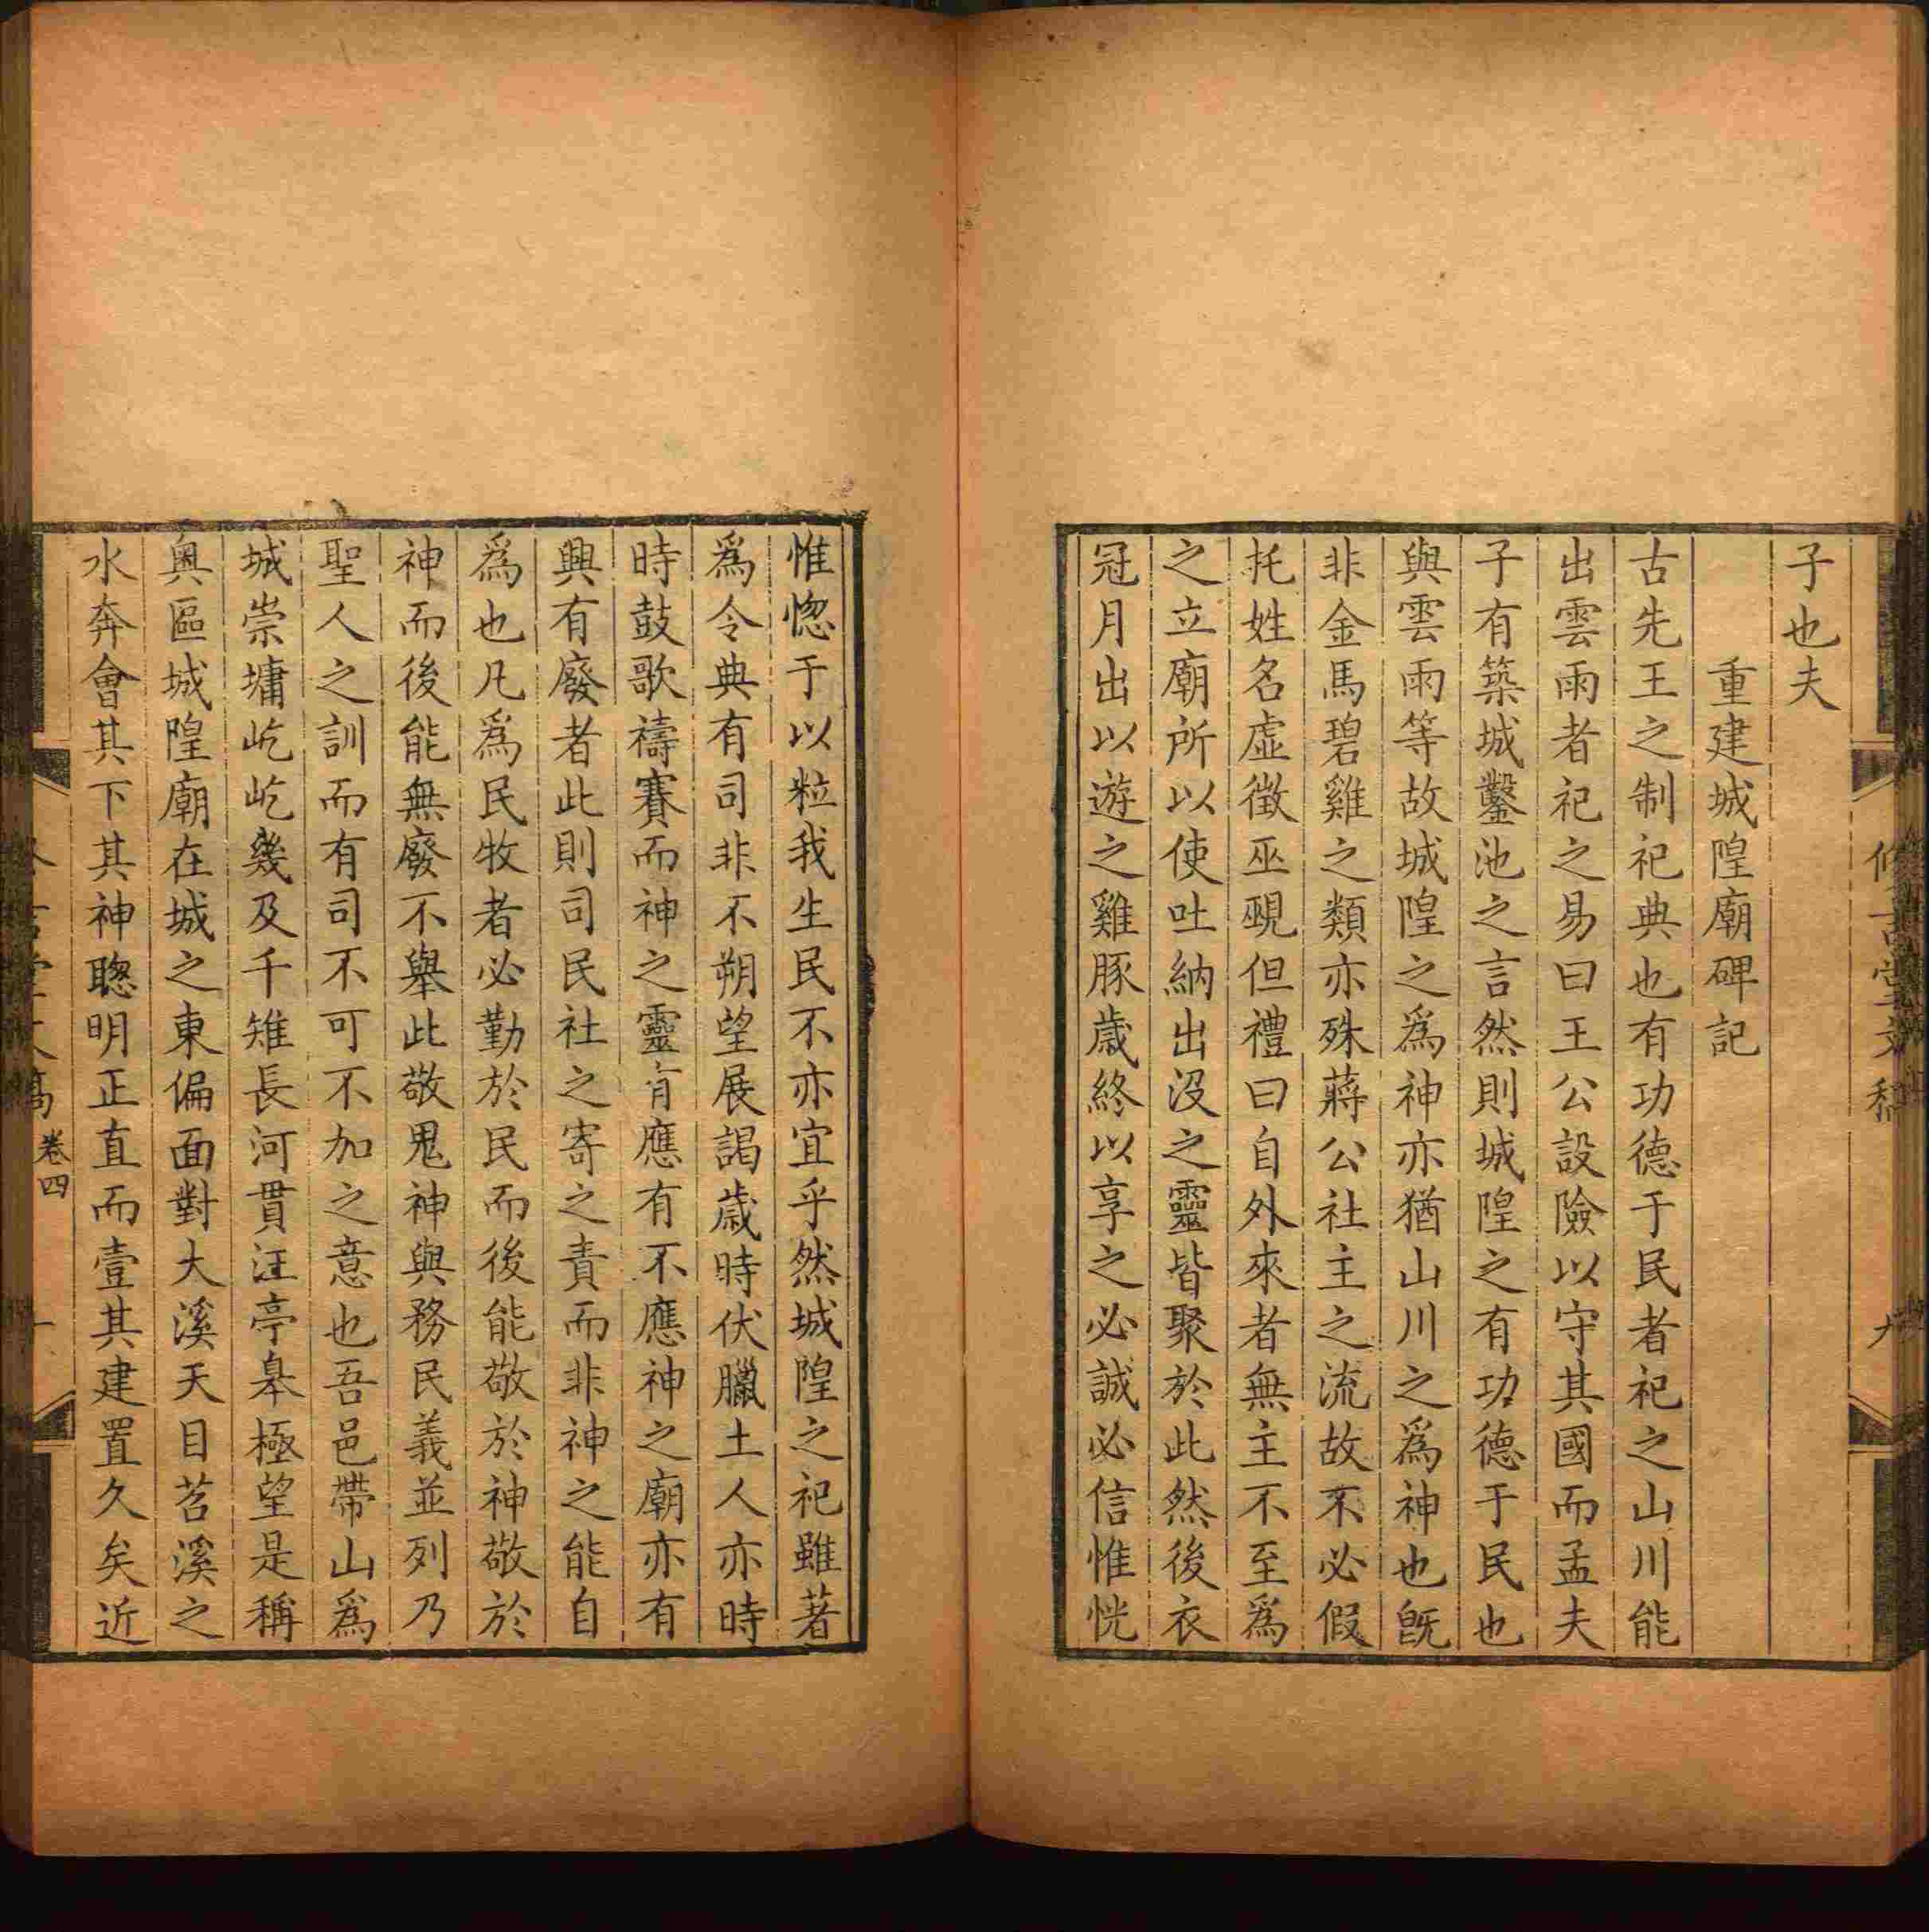 子也夫
重建城隍廟碑記
古先王之制祀典也有功德于民者祀之山川能
出雲雨者祀之易曰王公設險以守其國而孟夫
子有築城鑿池之言然則城隍之有功德于民也
與雲雨等故城隍之為神亦猶山川之為神也旣
非金馬碧雞之類亦殊蔣公社主之流故不必假
托姓名虛徵巫覡但禮曰自外來者無主不至為
之立廟所以使吐納出沒之靈皆聚於此然後衣
冠月出以遊之雞豚歲終以享之必誠必信惟恍
惟惚于以粒我生民不亦宜乎然城隍之祀雖著
為令典有司非不朔望展謁歲時伏臘土人亦時
時鼓歌禱賽而神之靈有應有不應神之廟亦有
興有廢者此則司民社之寄之責而非神之能自
為也凡為民牧者必勤於民而後能敬於神敬於
神而後能無廢不舉此敬鬼神與務民義並列乃
聖人之訓而有司不可不加之意也吾邑帶山為
城崇墉屹屹幾及千雉長河貫注亭皋極望是稱
奧區城隍廟在城之東偏面對大溪天目苕溪之
水奔會其下其神聰明正直而壹其建置久矣近
卷四